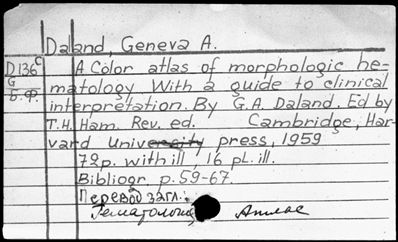 Daland, Geneva A.
D136ᶜ A Color atlas of morphologic he-
G matology With a guide to clinical
Б.Ф. interpretation. By G.A. Daland. Ed by
T.H. Ham. Rev. ed. Cambridge, Har-
vard university press, 1959
72p. with ill, 16 pl. ill.
Bibliogr p. 59-67.
Перевод загл.:
Гематология Атлас